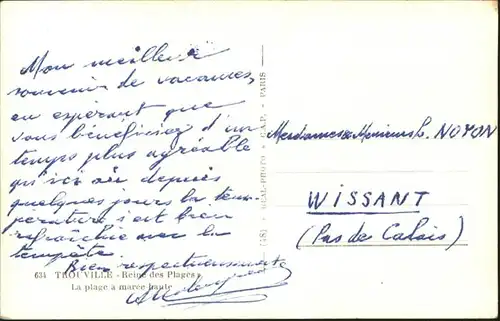 Mon meilleur
souvenir de vacances,
en espérant que
vous bénéficiez d'un
temps plus agréable
qu'ici où depuis
quelques jours la tem-
pérature s'est bien
rafraîchie avec la
tempête.
Bien respectueusement
634 TROUVILLE - Reine des Plages
La plage à marée haute
(S) - REAL-PHOTO - C.A.P. - PARIS
Mesdames & Messieurs L. NOYON
WISSANT
(Pas de Calais)